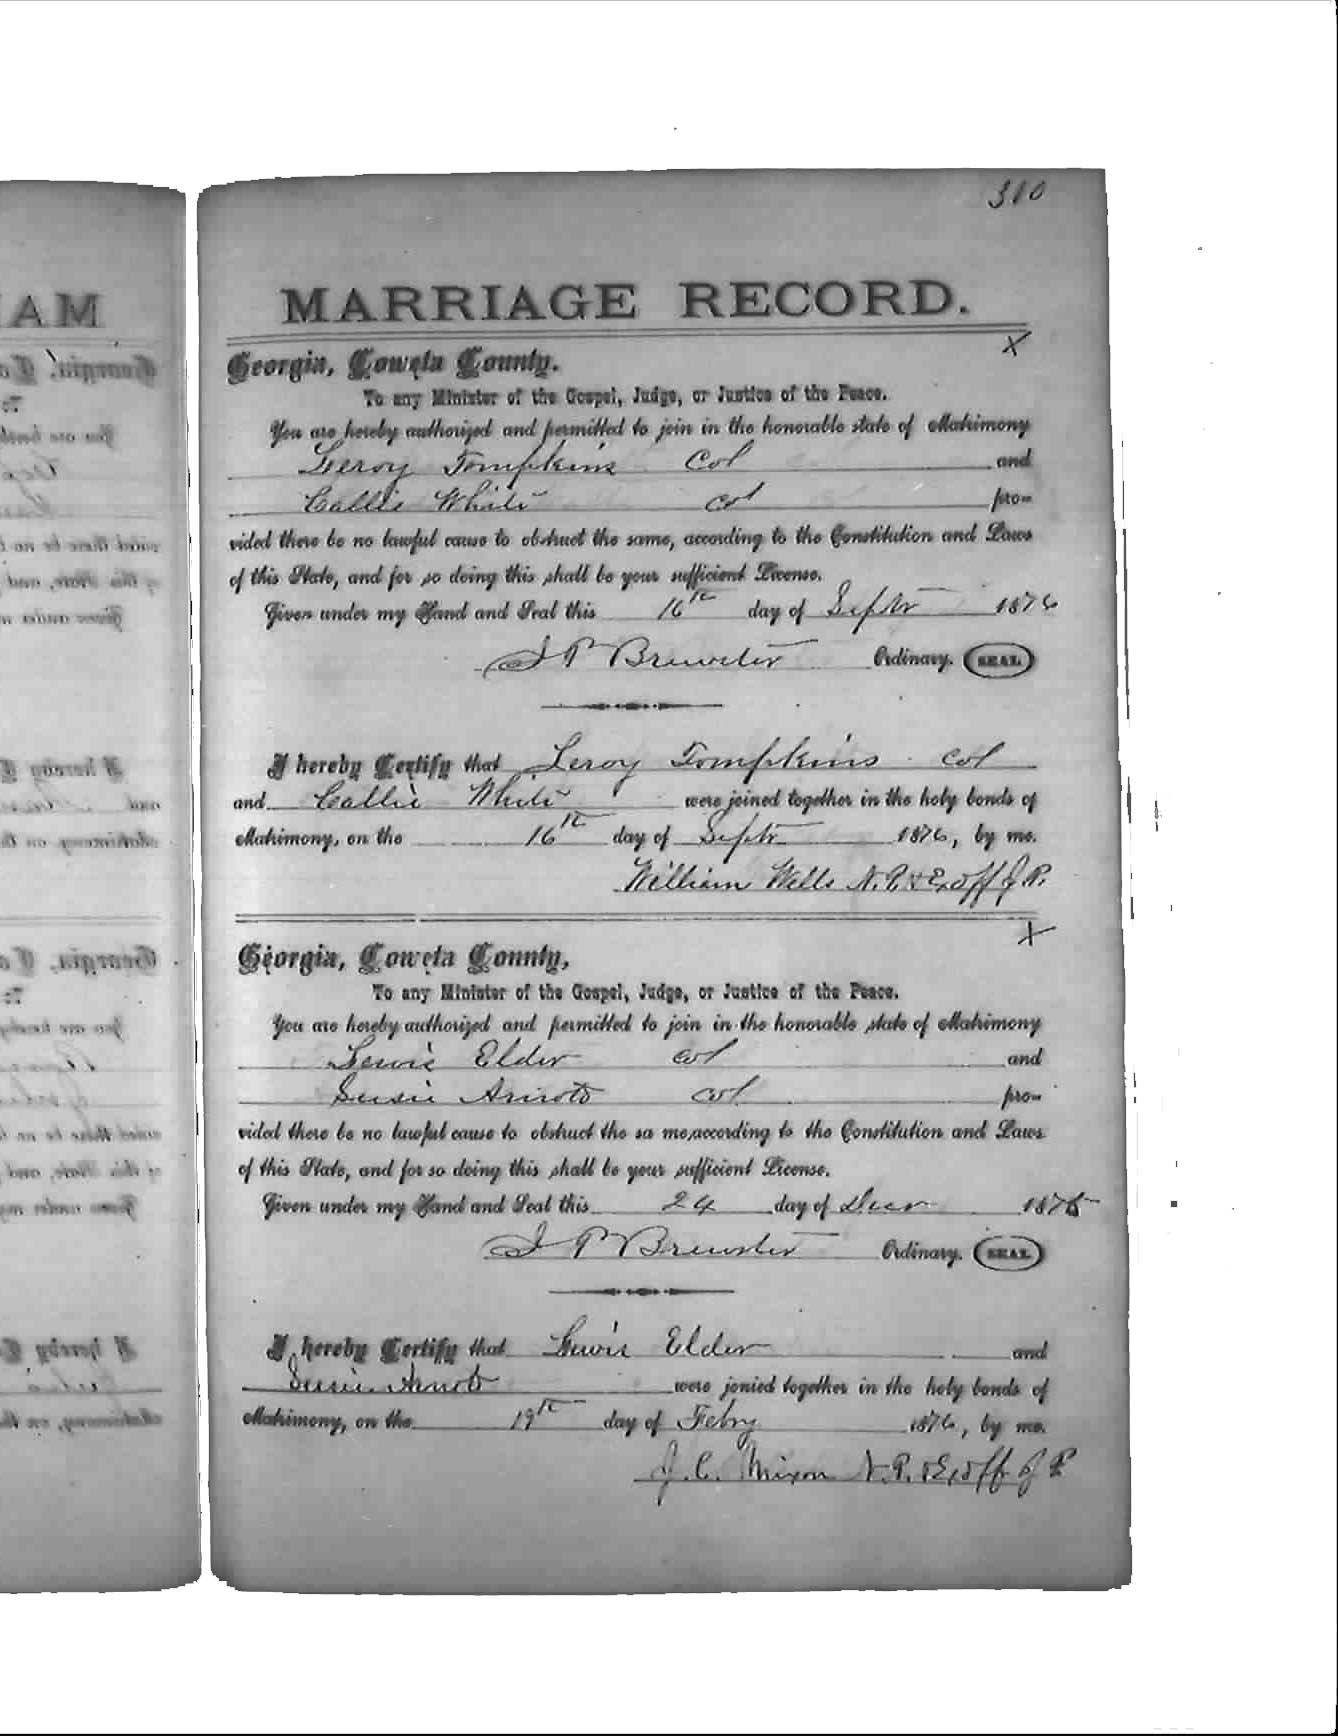 310
MARRIAGE RECORD.
X
Georgia, Coweta County.
To any Minister of the Gospel, Judge, or Justice of the Peace.
You are hereby authorized and permitted to join in the honorable state of Matrimony
Leroy Tompkins Col and
Callie White col pro-
vided there be no lawful cause to obstruct the same, according to the Constitution and Laws
of this State, and for so doing this shall be your sufficient License.
Given under my Hand and Seal this 16th day of Septr 1876
J P Brewster Ordinary. SEAL
I hereby Certify that Leroy Tompkins Col
and Callie White were joined together in the holy bonds of
Matrimony, on the 16th day of Septr 1876, by me.
William Wells N.P. & Ex off J.P.
X
Georgia, Coweta County,
To any Minister of the Gospel, Judge, or Justice of the Peace.
You are hereby authorized and permitted to join in the honorable state of Matrimony
Lewis Elder col and
Susie col pro-
vided there be no lawful cause to obstruct the sa me,according to the Constitution and Laws
of this State, and for so doing this shall be your sufficient License.
Given under my Hand and Seal this 24 day of Decr 1875
J P Brewster Ordinary. SEAL
I hereby Certify that Lewis Elder and
Susie were jonied together in the holy bonds of
Matrimony, on the 19th day of Febry 1876, by me.
J. C. Mixon N.P. & Ex off J P